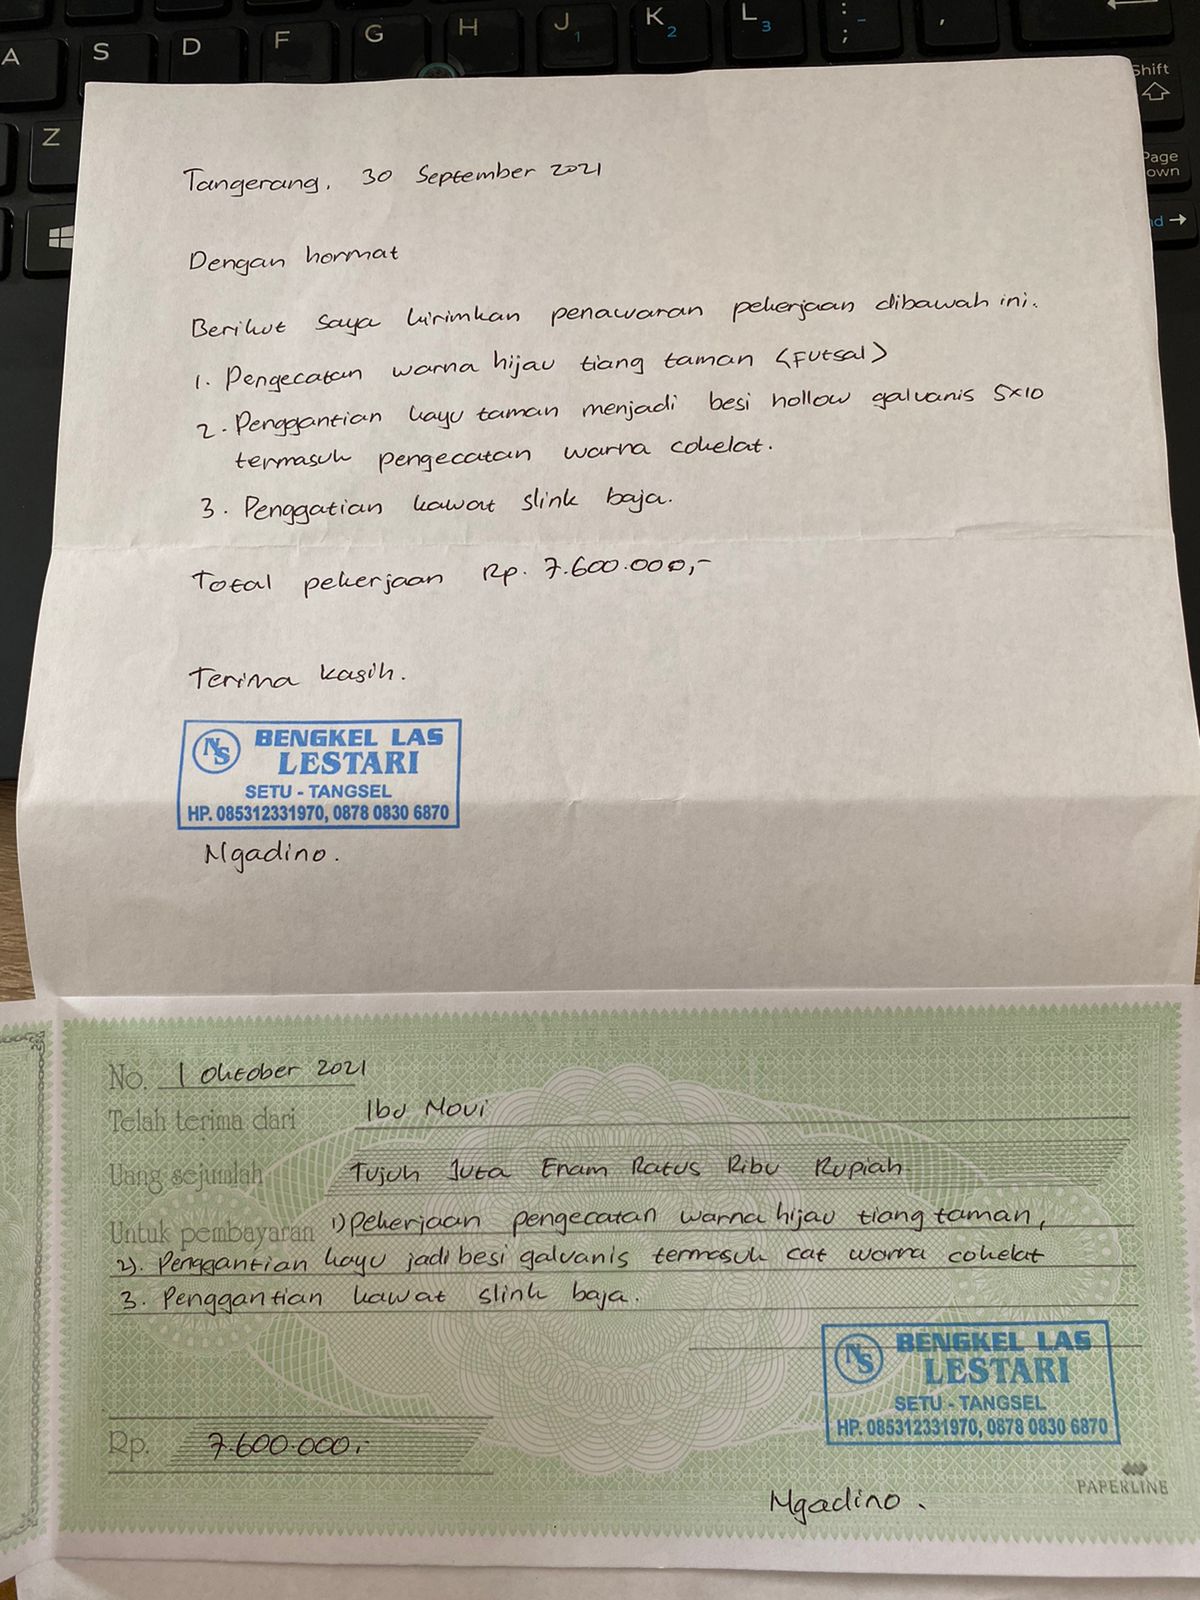 A S D F G H J 1 K 2 L 3 : ; - ,
Shift
Z
Page
own
nd →
Tangerang, 30 September 2021
Dengan hormat
Berikut saya kirimkan penawaran pekerjaan dibawah ini.
1. Pengecatan warna hijau tiang taman (Futsal)
2. Penggantian kayu taman menjadi besi hollow galvanis 5x10
termasuk pengecatan warna cokelat.
3. Penggatian kawat slink baja.
Total pekerjaan Rp. 7.600.000,-
Terima kasih.
NS BENGKEL LAS
LESTARI
SETU - TANGSEL
HP. 085312331970, 0878 0830 6870
Ngadino.
No. 1 Oktober 2021
Telah terima dari Ibu Novi
Uang sejumlah Tujuh Juta Enam Ratus Ribu Rupiah
Untuk pembayaran 1) Pekerjaan pengecatan warna hijau tiang taman,
2). Penggantian kayu jadi besi galvanis termasuk cat warna cokelat
3. Penggantian kawat slink baja.
NS BENGKEL LAS
LESTARI
SETU - TANGSEL
HP. 085312331970, 0878 0830 6870
Rp. 7.600.000,-
PAPERLINE
Ngadino.